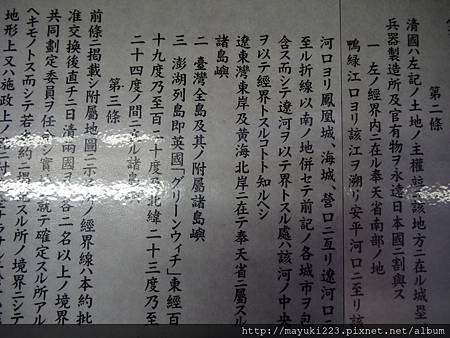 第二條
清國ハ左記ノ土地ノ主權竝ニ該地方ニ在ル城壘
兵器製造所及官有物ヲ永遠日本國ニ割與ス
一 左ノ經界内ニ在ル奉天省南部ノ地
鴨緑江口ヨリ該江ヲ溯リ安平河口ニ至リ該
河口ヨリ鳳凰城、海城、營口ニ亙リ遼河口ニ
至ル折線以南ノ地併セテ前記ノ各城市ヲ包
含ス而シテ遼河ヲ以テ界トスル處ハ該河ノ中央
ヲ以テ經界トスルコトト知ルヘシ
遼東灣東岸及黄海北岸ニ在テ奉天省ニ屬スル
諸島嶼
二 臺灣全島及其ノ附屬諸島嶼
三 澎湖列島即英國「グリーンウィチ」東經百
十九度乃至百二十度及北緯二十三度乃至
二十四度ノ間ニ在ル諸島嶼
第三條
前條ニ掲載シ附屬地圖ニ示ス所ノ經界線ハ本約批
准交換後直チニ日清兩國ヨリ各二名以上ノ境界
共同劃定委員ヲ任命シ實地ニ就テ確定スル所アル
ヘキモノトス而シテ若本約ニ掲記スル所ノ境界ニシテ
地形上又ハ施政上ノ
http://mayuki223.pixnet.net/album